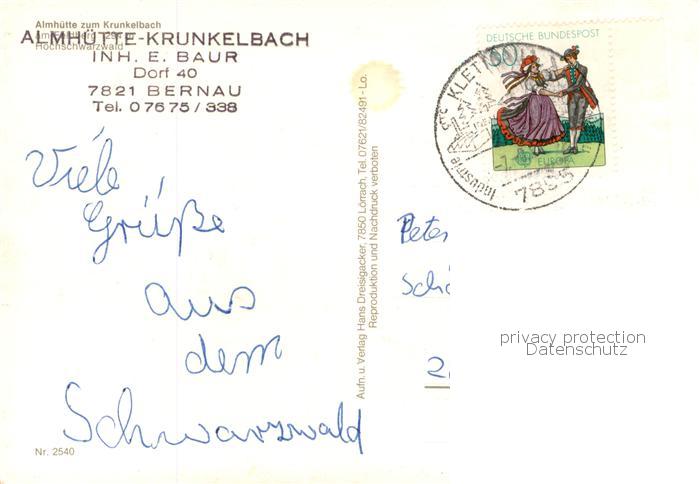 Almhütte zum Krunkelbach
Hochschwarzwald
ALMHÜTTE-KRUNKELBACH
INH. E. BAUR
Dorf 40
7821 BERNAU
Tel. 07675/338
Viele
Grüße
aus
dem
Schwarzwald
Nr. 2540
Aufn. u. Verlag Hans Dreisigacker, 7850 Lörrach, Tel. 07621/82491 - Lo.
Reproduktion und Nachdruck verboten
DEUTSCHE BUNDESPOST
EUROPA
Peter
privacy protection
Datenschutz